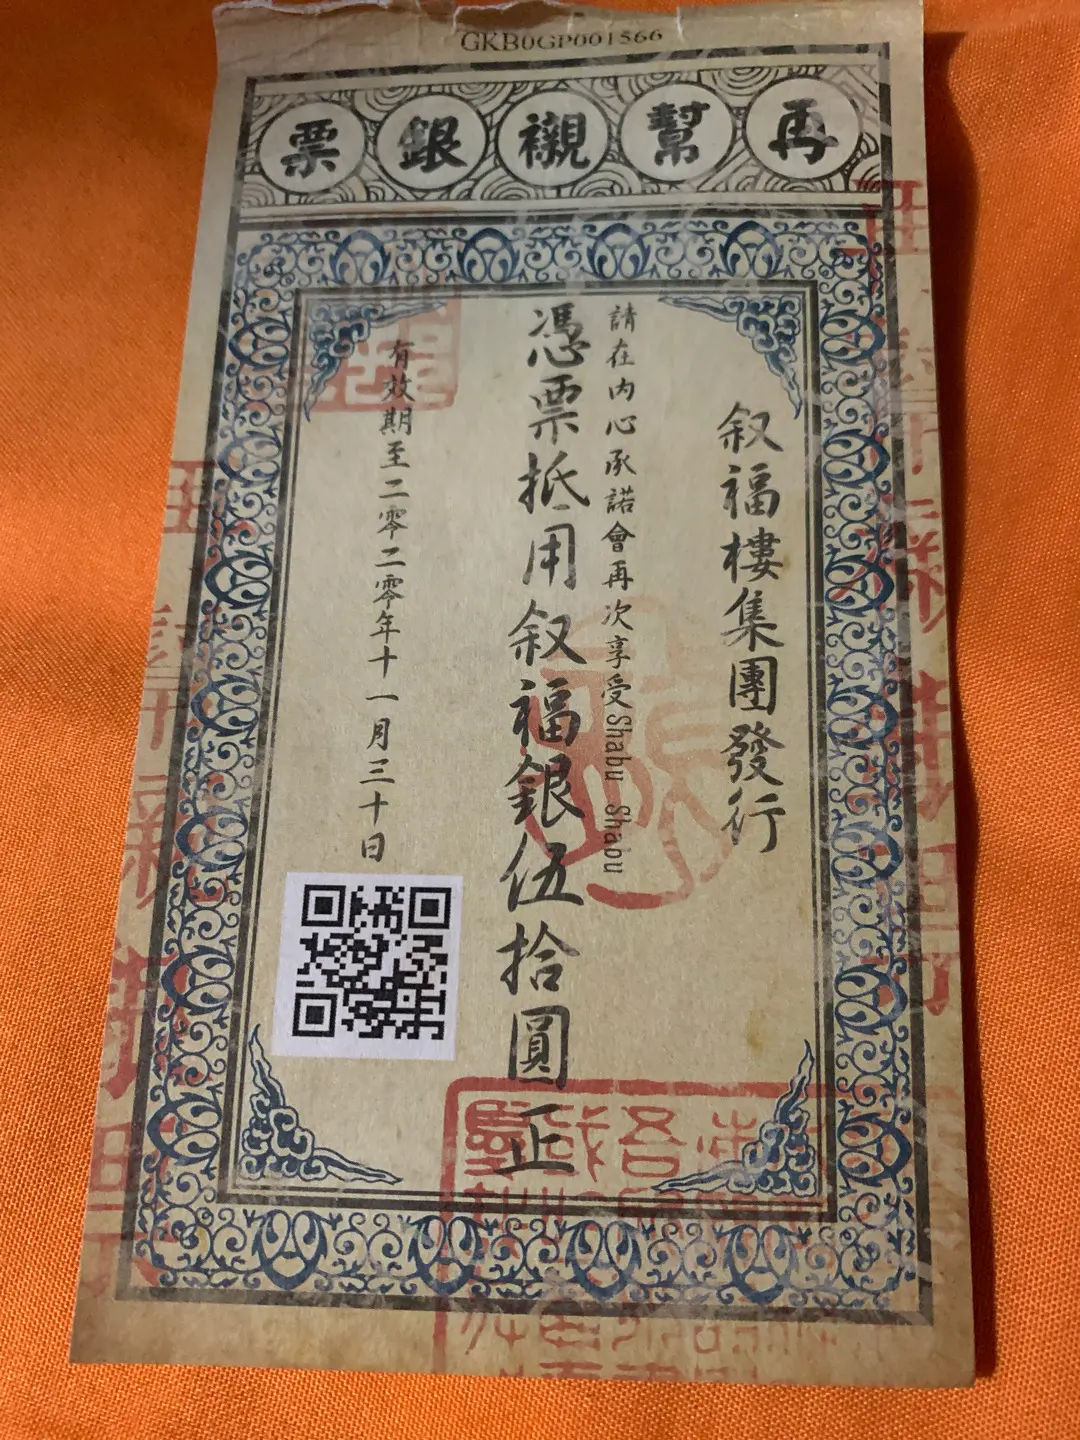 GKB0GP001566
再幫襯銀票
叙福樓集團發行
請在内心承諾會再次享受Shabu Shabu
憑票抵用叙福銀伍拾圓正
有效期至二零二零年十一月三十日